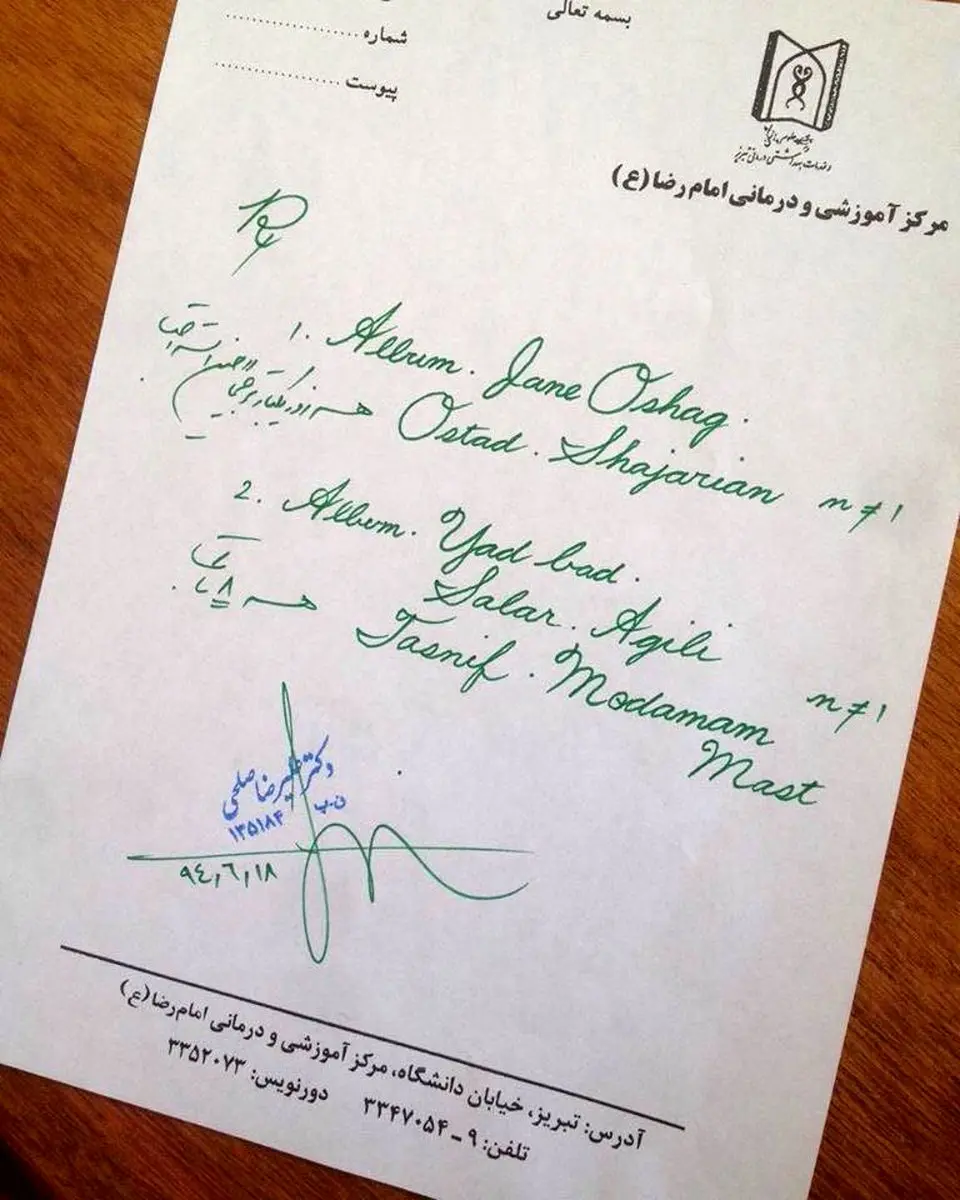 بسمه تعالی
شماره ....................
پیوست ....................
دانشگاه علوم پزشکی
و خدمات بهداشتی درمانی تبریز
مرکز آموزشی و درمانی امام رضا (ع)
Rx
1. Album. Jane Oshag.
Ostad. Shajarian n≠1
هر روز یکبار ترجیحاً
2. Album. Yad bad.
Salar. Agili
هر ۸
Tasnif. Modamam n≠1
Mast
دکتر علیرضا صلحی
ن.پ ۱۳۵۱۸۴
۹٤,٦,۱۸
آدرس: تبریز، خیابان دانشگاه، مرکز آموزشی و درمانی امام رضا (ع)
تلفن: ۹ - ۳۳۴۷۰۵۴ دورنویس: ۳۳۵۲۰۷۳